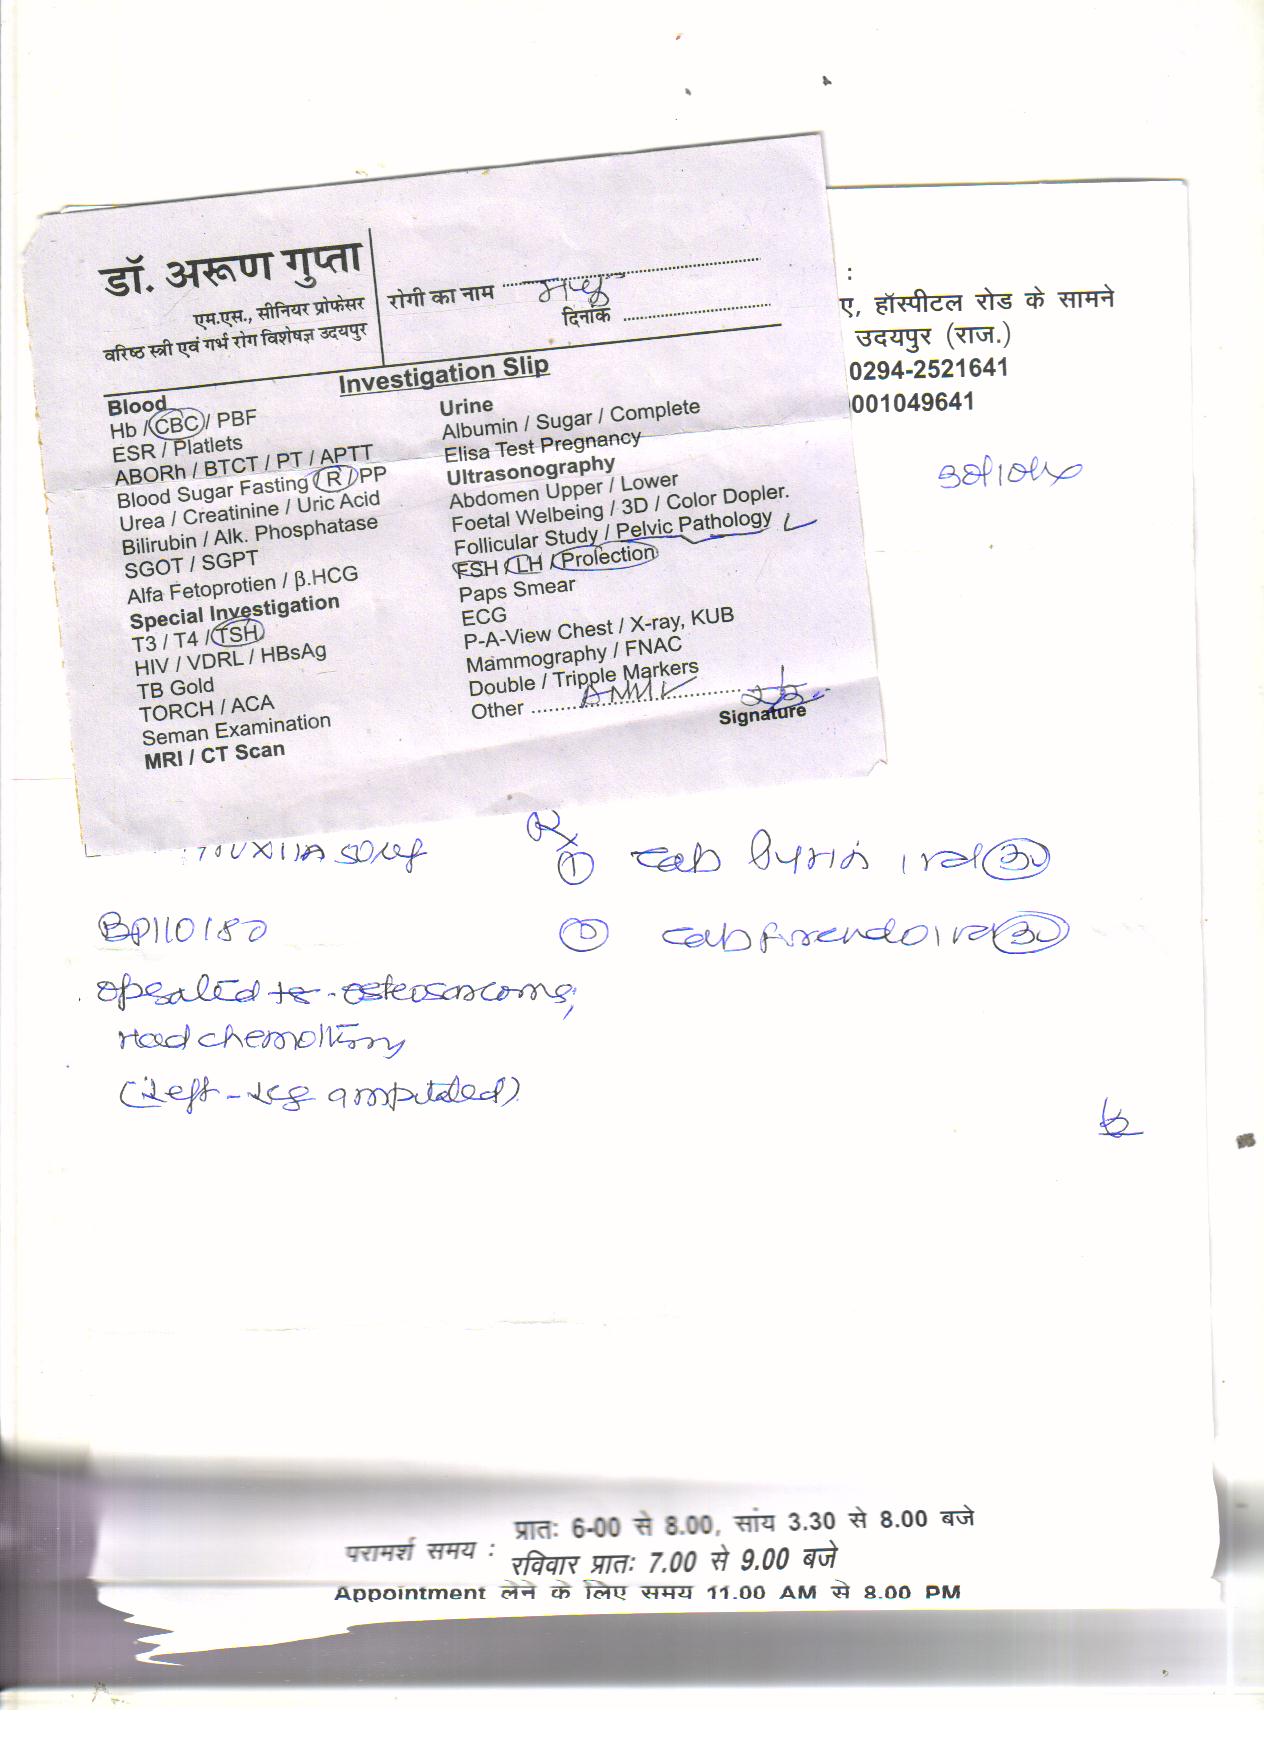 डॉ. अरूण गुप्ता
एम.एस., सीनियर प्रोफेसर
वरिष्ठ स्त्री एवं गर्भ रोग विशेषज्ञ उदयपुर
रोगी का नाम
दिनांक
Investigation Slip
Blood
Hb / CBC / PBF
ESR / Platlets
ABORh / BTCT / PT / APTT
Blood Sugar Fasting / R / PP
Urea / Creatinine / Uric Acid
Bilirubin / Alk. Phosphatase
SGOT / SGPT
Alfa Fetoprotien / β.HCG
Special Investigation
T3 / T4 / TSH
HIV / VDRL / HBsAg
TB Gold
TORCH / ACA
Seman Examination
MRI / CT Scan
Urine
Albumin / Sugar / Complete
Elisa Test Pregnancy
Ultrasonography
Abdomen Upper / Lower
Foetal Welbeing / 3D / Color Dopler.
Follicular Study / Pelvic Pathology
FSH / LH / Prolection
Paps Smear
ECG
P-A-View Chest / X-ray, KUB
Mammography / FNAC
Double / Tripple Markers
Other
Signature
:
ए, हॉस्पीटल रोड के सामने
उदयपुर (राज.)
0294-2521641
001049641
Rx
① Tab
BP 110/80
② Tab
operated osteosarcoma,
Had chemo
(Left-leg amputated)
परामर्श समय : प्रातः 6-00 से 8.00, सांय 3.30 से 8.00 बजे
रविवार प्रातः 7.00 से 9.00 बजे
Appointment लेने के लिए समय 11.00 AM से 8.00 PM